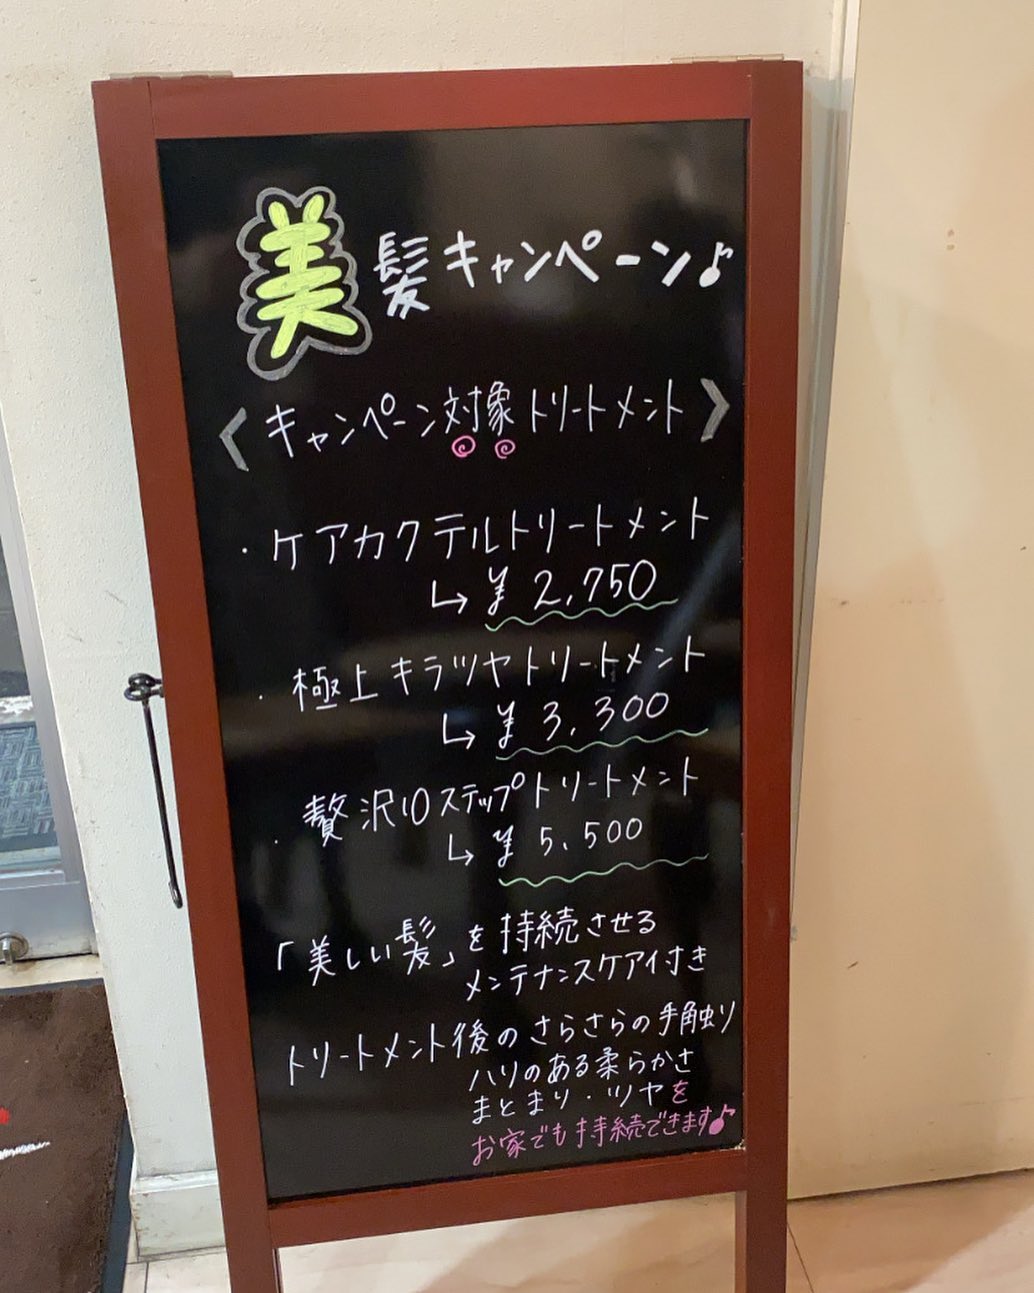 美髪キャンペーン♪
〈キャンペーン対象トリートメント〉
・ケアカクテルトリートメント
↳ ¥2,750
・極上キラツヤトリートメント
↳ ¥3,300
・贅沢10ステップトリートメント
↳ ¥5,500
「美しい髪」を持続させる
メンテナンスケアイ付き
トリートメント後のさらさらの手触り
ハリのある柔らかさ
まとまり・ツヤを
お家でも持続できます♪